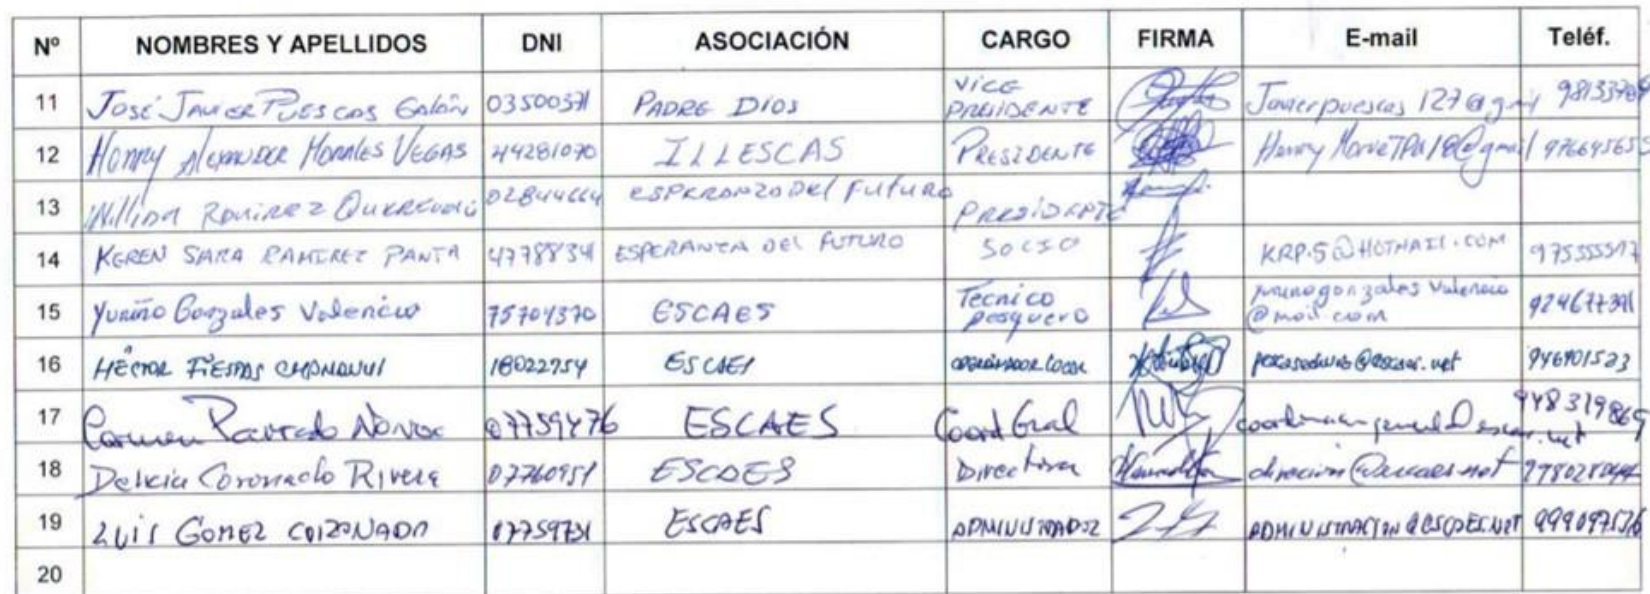 Nº NOMBRES Y APELLIDOS DNI ASOCIACIÓN CARGO FIRMA E-mail Teléf.
11 JOSÉ JAVIER PUESCAS Galán 03500371 PADRE DIOS VICE PRESIDENTE Javierpuescas 127@gmail
12 Henry Alexander Morales VEGAS 44281070 ILLESCAS PRESIDENTE Henry 976645655
13 William Ramirez 02844664 ESPERANZA DEL FUTURO PRESIDENTE
14 KEREN SARA RAMIREZ PANTA 47788341 ESPERANZA DEL FUTURO SOCIO KRP.5@HOTMAIL.COM 975555517
15 Yuniño Gonzales Valencia 75704370 ESCAES Tecnico pesquero @mail.com 924677391
16 HÉCTOR FIESTAS 18022754 ESCAES COORDINADOR LOCAL 946901523
17 Carmen 07759476 ESCAES Coord Gral 948319869
18 Delicia Coronado Rivera 07760951 ESCAES Directiva direccion@escaes.net
19 LUIS GOMEZ CORONADO 07759731 ESCAES ADMINISTRADOR ADMINISTRACION@ESCAES.NET 999097516
20